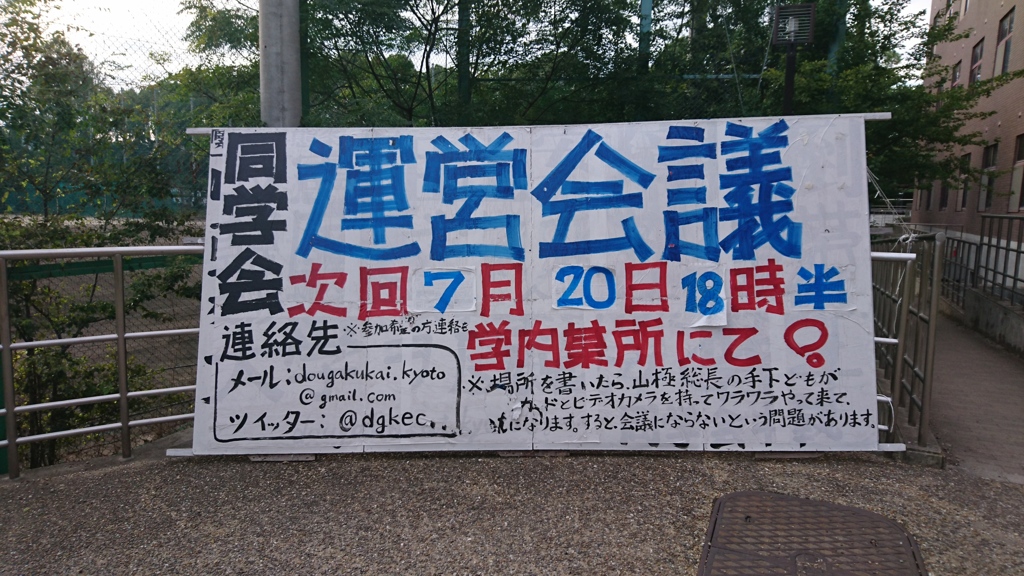 同学会
運営会議
次回7月20日18時半
学内某所にて
連絡先
※参加希望の方連絡も
メール:dougakukai.kyoto
@gmail.com
ツイッター:@dgkec
※場所を書いたら、山極総長の手下どもが
ドとビデオカメラを持ってワラワラやって来て、
になります。すると、会議にならないという問題があります。